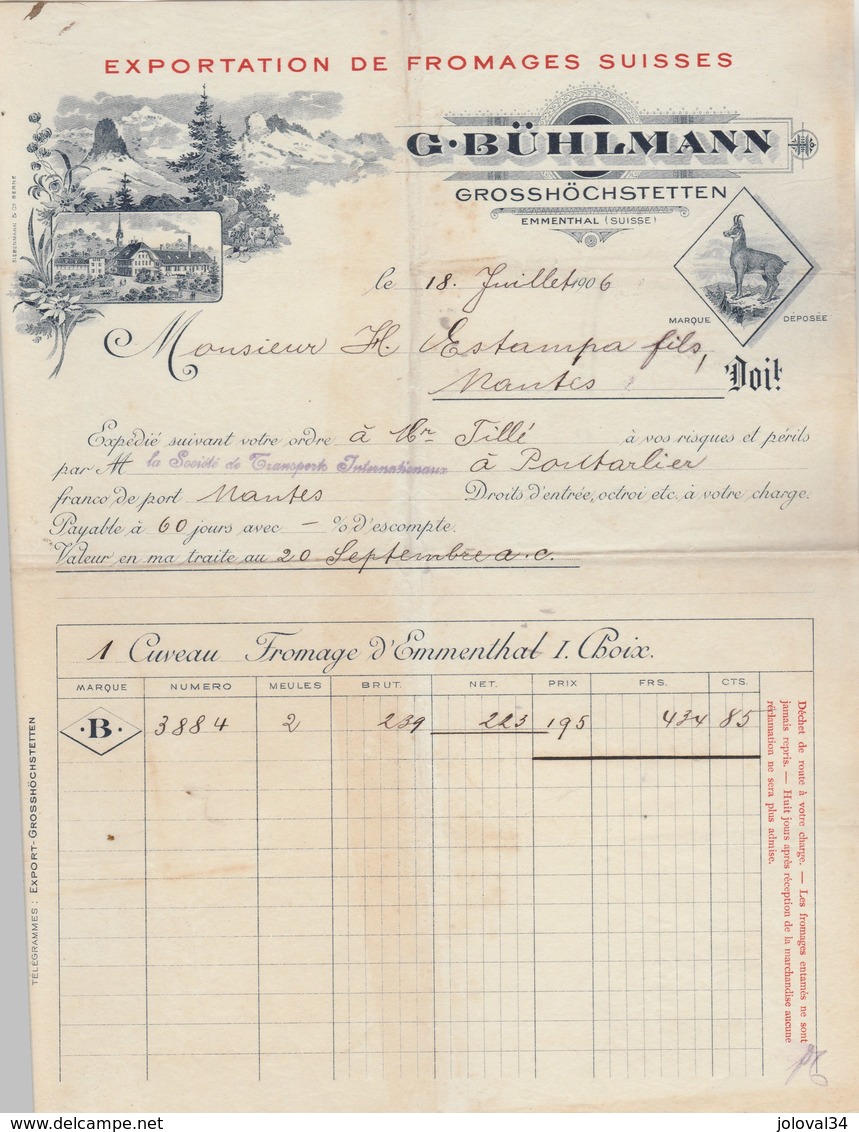 EXPORTATION DE FROMAGES SUISSES
G. BÜHLMANN
GROSSHÖCHSTETTEN
EMMENTHAL (SUISSE)
MARQUE DÉPOSÉE
le 18. Juillet 1906
Monsieur H. Estampa fils,
Nantes Doit
Expédié suivant votre ordre à Mr Tillé à vos risques et périls
par M la Société de Transports Internationaux à Pontarlier
franco de port Nantes Droits d'entrée, octroi etc. à votre charge.
Payable à 60 jours avec — % d'escompte.
Valeur en ma traite au 20 Septembre a. c.
1 Cuveau Fromage d'Emmenthal I. Choix.
MARQUE NUMERO MEULES BRUT. NET. PRIX FRS. CTS.
·B· 3884 2 239 223 195 434 85
Déchet de route à votre charge. — Les fromages entamés ne sont
jamais repris. — Huit jours après réception de la marchandise aucune
réclamation ne sera plus admise.
TÉLÉGRAMMES: EXPORT-GROSSHÖCHSTETTEN
delcampe.net
joloval34